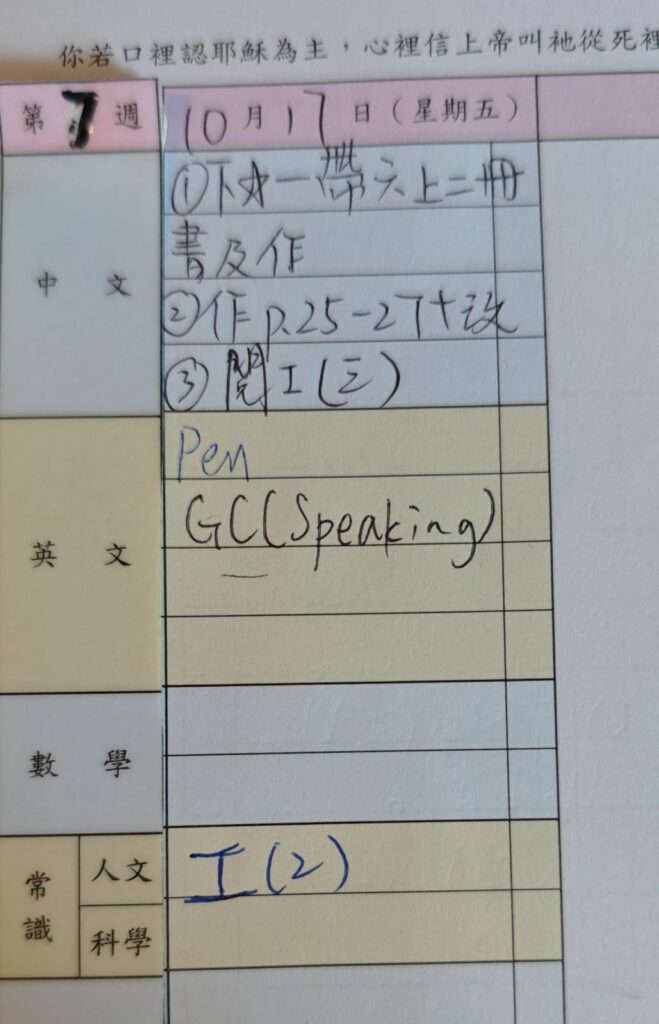 你若口裡認耶穌為主，心裡信上帝叫祂從死裡
第7週 10月17日（星期五）
中文
①下水一帶六上二冊
書及作
②作p.25-27+改
③閱工(三)
英文
Pen
GC(Speaking)
數學
常識
人文
工(2)
科學